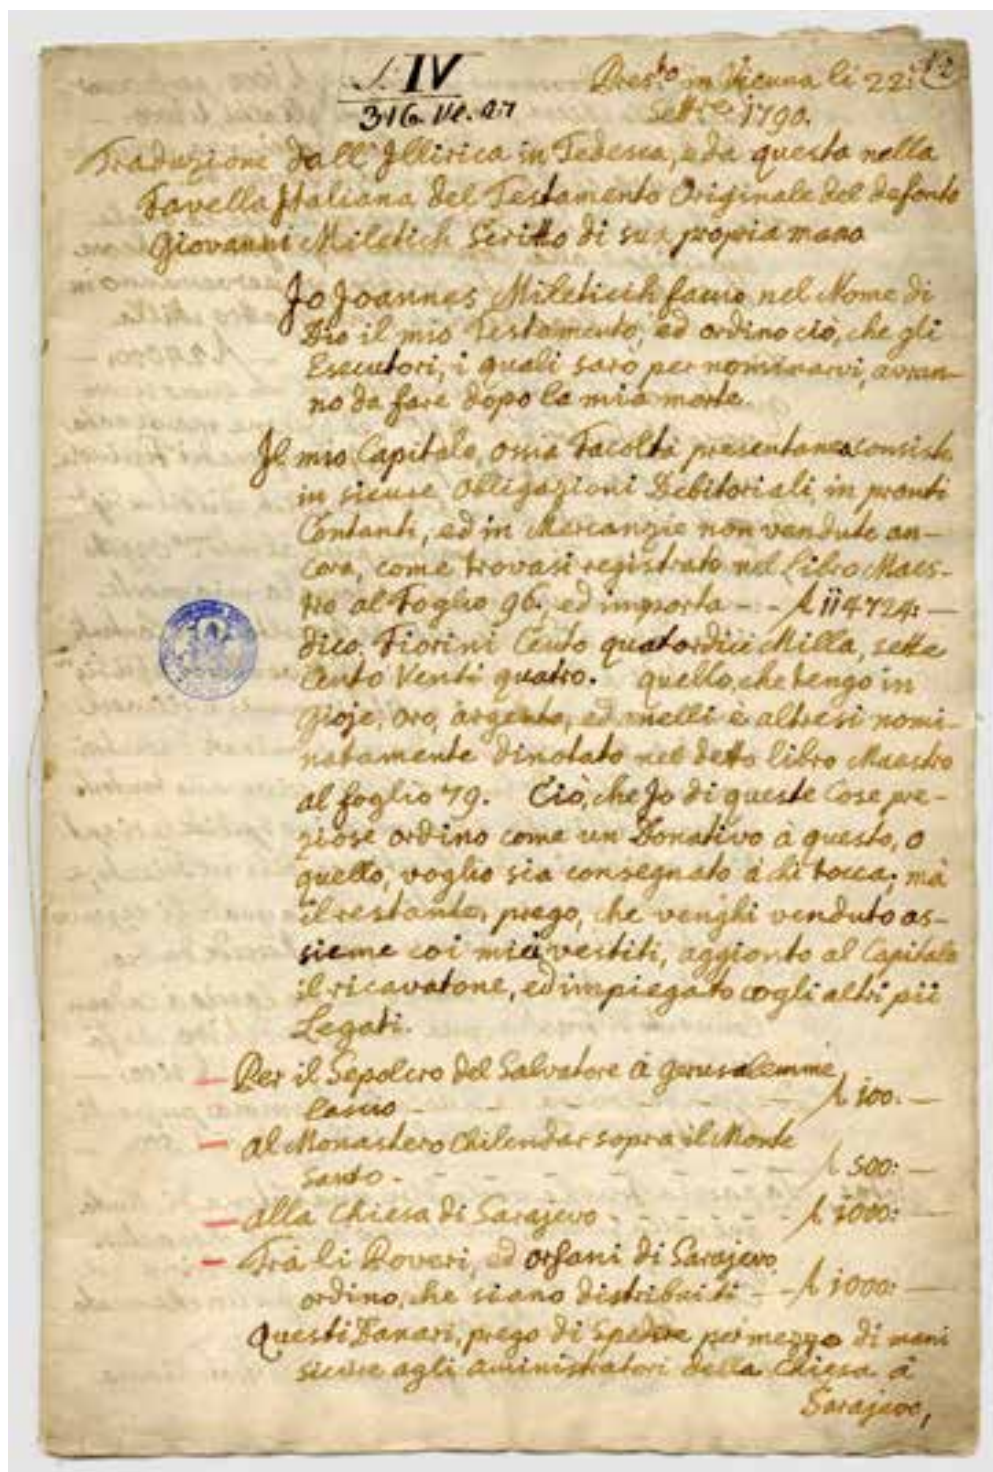 IV
316. Vl. 27
Pres.to in Vienna li 22:
Sett.re 1790.
Traduzione dall' Jllirica in Tedesca, e da questa nella
Favella Jtaliana del Testamento Originale del defonto
Giovanni Miletich Scritto di sua propria mano
Jo Joannes Miletich faccio nel Nome di
Dio il mio Testamento, ed ordino ciò, che gli
Esecutori, i quali sarò per nominarvi, avran-
no da fare dopo la mia morte.
Jl mio Capitale, ossia Facoltà presentanea consiste
in sicure Obligazioni Debitoriali, in pronti
Contanti, ed in Mercanzie non vendute an-
cora, come trovasi registrato nel Libro Maes-
tro al Foglio 96. ed importa - - f 114724: -
dico Fiorini Cento quatordici Milla, sette
Cento Venti quatro. quello, che tengo in
Gioje, oro, argento, ed anelli è altresi nomi-
natamente dinotato nel detto libro Maestro
al foglio 79. Ciò, che Jo di queste Cose pre-
ziose ordino come un Donativo à questo, o
quello, voglio sia consegnato à chi tocca; mà
il restante, prego, che venghi venduto as-
sieme coi miei vestiti, aggionto al Capitale
il ricavatone, ed impiegato cogli altri pii
Legati.
Per il Sepolcro del Salvatore à Gerusalemme
lascio - - - - f 100. -
al Monastero Chilendar sopra il Monte
Santo - - - - f 500: -
alla Chiesa di Sarajevo - - - - f 1000: -
Trà li Poveri, ed orfani di Sarajevo
ordino, che siano distribuiti - - f 1000: -
Questi Danari, prego di Spedire per mezzo di mani
sicure agli Aministratori della Chiesa à
Sarajevo,